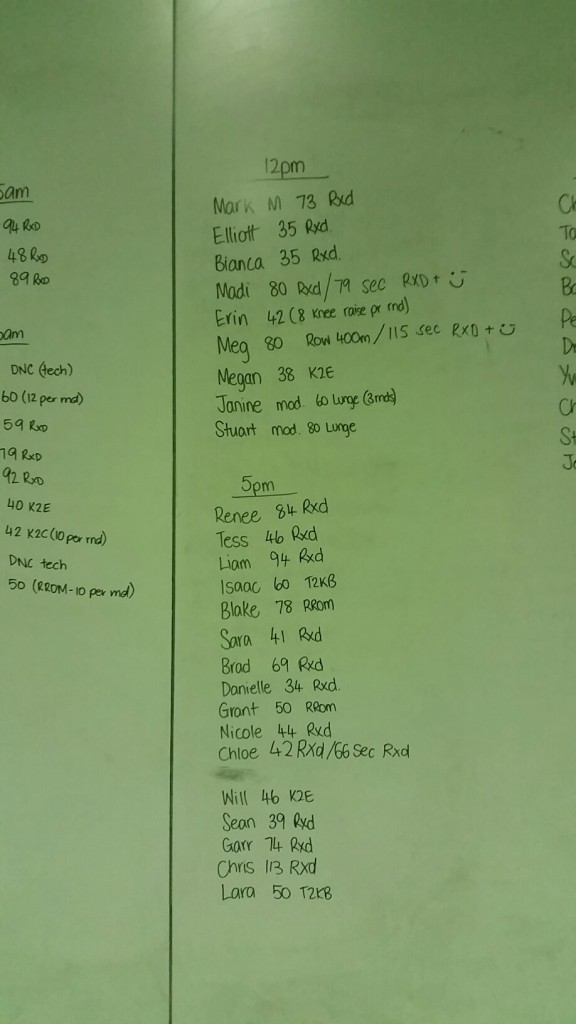 5am
94 RxD
48 RxD
89 RxD
DNC (tech)
60 (12 per rnd)
59 RxD
79 RxD
92 RxD
40 K2E
42 K2C (10 per rnd)
DNC tech
50 (RROM-10 per rnd)
12pm
Mark M 73 Rxd
Elliott 35 Rxd.
Bianca 35 Rxd.
Madi 80 Rxd/79 sec RXD+ :)
Erin 42 (8 knee raise pr rnd)
Meg 80 Row 400m/115 sec RXD + :)
Megan 38 K2E
Janine mod. 60 Lunge (3rnds)
Stuart mod. 80 Lunge
5pm
Renee 84 Rxd
Tess 46 Rxd
Liam 94 Rxd
Isaac 60 T2KB
Blake 78 RROM
Sara 41 Rxd
Brad 69 Rxd
Danielle 34 Rxd.
Grant 50 RROM
Nicole 44 Rxd
Chloe 42 RXd/66 Sec Rxd
Will 46 K2E
Sean 39 Rxd
Garr 74 Rxd
Chris 113 Rxd
Lara 50 T2KB